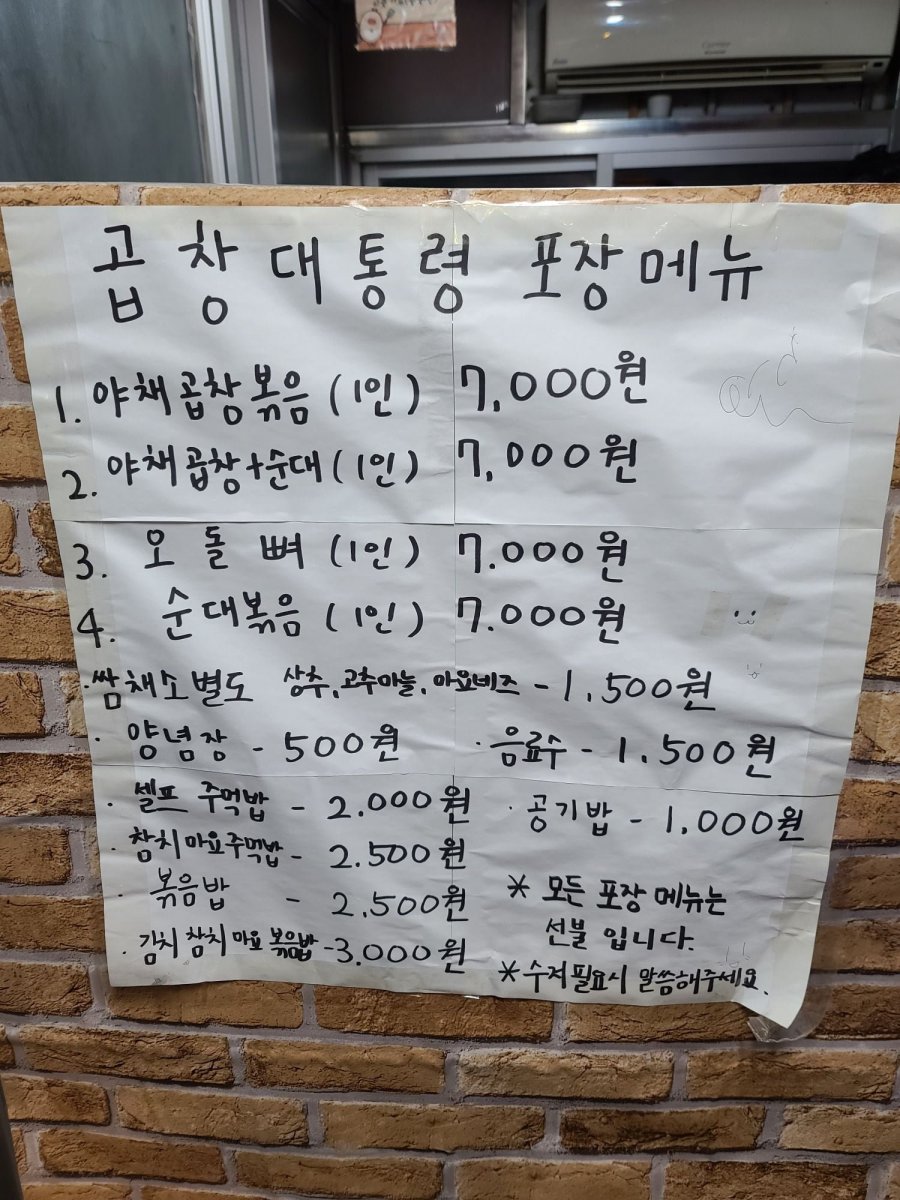 곱창대통령 포장메뉴
1. 야채곱창볶음 (1인) 7,000원
2. 야채곱창+순대 (1인) 7,000원
3. 오돌뼈 (1인) 7.000원
4. 순대볶음 (1인) 7.000원
·쌈채소별도 상추,고추마늘,마요네즈 - 1,500원
· 양념장 - 500원
· 음료수 - 1.500원
· 셀프 주먹밥 - 2.000원
· 공기밥 - 1,000원
· 참치마요주먹밥 - 2.500원
· 볶음밥 - 2.500원
· 김치참치마요볶음밥 - 3.000원
* 모든 포장 메뉴는
선불 입니다.
* 수저필요시 말씀해주세요.